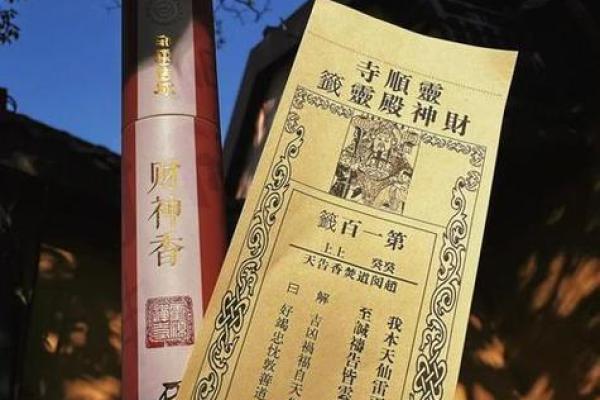 靈順寺
財神殿靈籤
第一百籤
癸癸 上上
趙閱道焚香告天
我本天仙雷
至誠禱告皆
解 吉凶禍福自天
曰 好竭忠忱敦善道
财神香